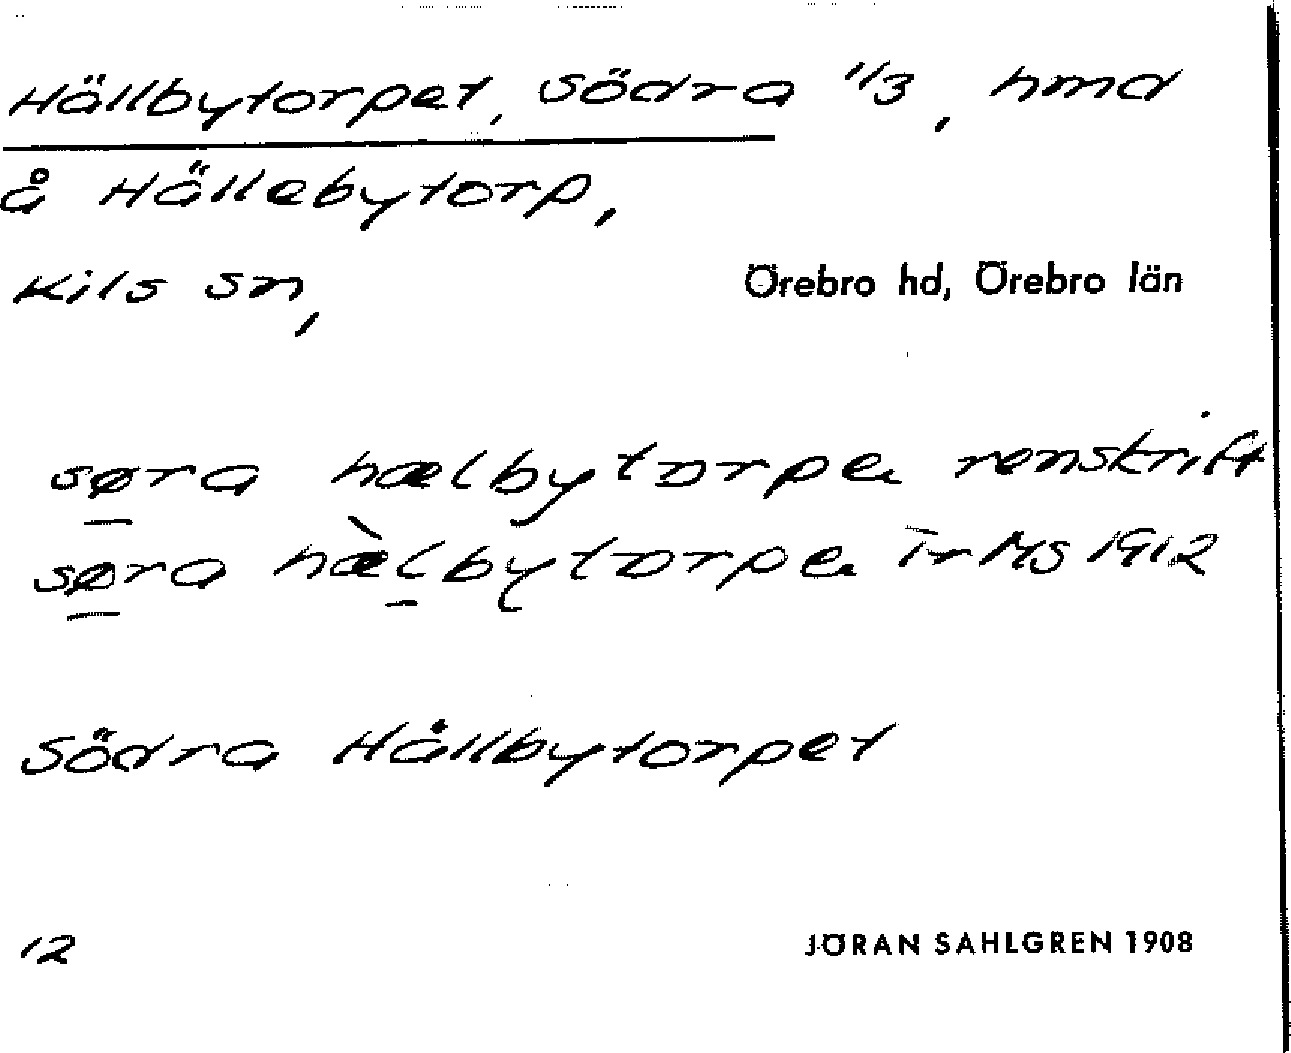 Hällbytorpet, Södra 1/3, hmd
å Hällebytorp,
Kils sn, Örebro hd, Örebro län
søra hælbytorpe renskrift
søra hæ̀lbytorpe i r MS 1912
Södra Hållbytorpet
12 JÖRAN SAHLGREN 1908